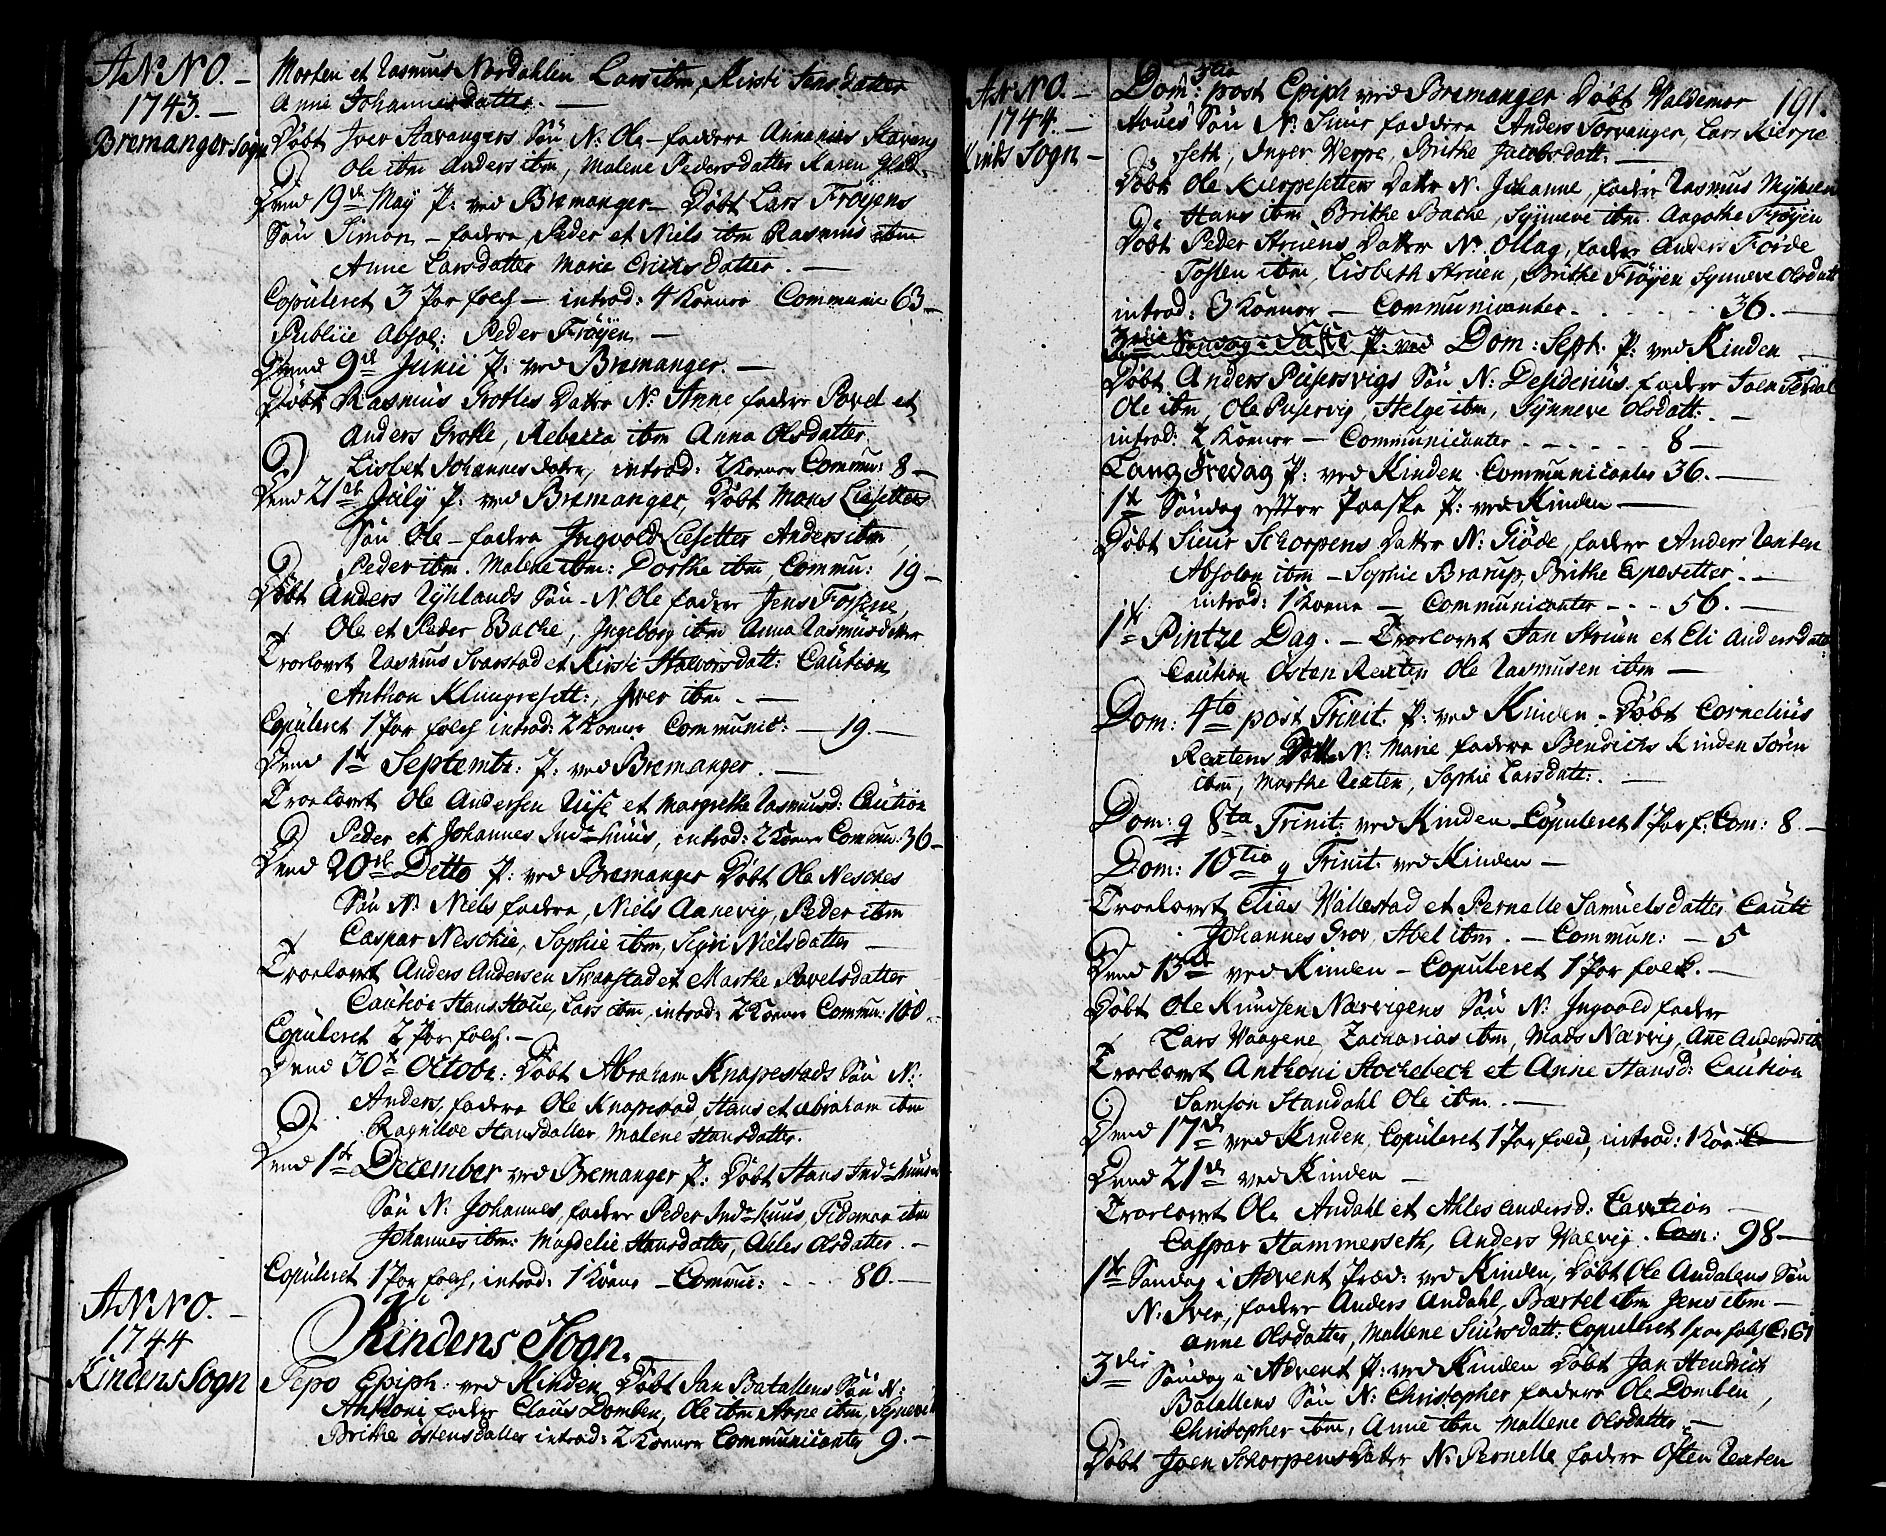 ANNO. –
1743. –
Bremanger Sogn
Morten et Rasmus Nordahlen Lars ibm, Kirsti Jensdatter
Anne Johannesdatter. –
Døbt Iver Stavangers Søn N: Ole – faddere Ananias Stavang
Ole ibm Anders ibm, Malene Pedersdatter Karen
Dend 19de May P: ved Bremanger – Døbt Lars Frøyens
Søn Simon – faddere Peder et Niels ibm Rasmus ibm
Anne Larsdatter Marie Erichsdatter. –
Copuleret 3 Par folch – introd: 4 Koener Communic 63 –
Publice Absol: Peder Frøyen –
Dend 9de Junii P: ved Bremanger. –
Døbt Rasmus Grotles Datter N: Anne faddere Povel et
Anders Grotle, Rebecca ibm Anna Olsdatter
Lisbet Johannesdatter, introd: 2 Koener Commu: 8 –
Dend 21de July P: ved Bremanger, Døbt Mons Liesetters
Søn Ole – faddere Ingvold Liesetter Anders ibm,
Peder ibm. Malene ibm: Dorthe ibm, Commu: 19 –
Døbt Anders Rylands Søn – N Ole faddere Jens Foskne,
Ole et Peder Bache, Ingeborg ibm Anna Rasmusdatter
Troelovet Rasmus Svarstad et Kirsti Halvorsdatt: Caution
Anthon Klungresett:, Iver ibm. –
Copuleret 1 Par folch introd: 2 Koener Communic: – 19. –
Dend 1te Septembr: P: ved Bremanger. –
Troelovet Ole Andersen Riise et Margrethe Rasmusd: Caution
Peder et Johannes Indrehuus, introd: 2 Koener Commu: 36 –
Dend 20de Detto P: ved Bremanger Døbt Ole Nesches
Søn N: Niels faddere, Niels Aanevig, Peder ibm
Caspar Neschie, Sophie ibm, Sigri Nielsdatter –
Troelovet Anders Andersen Svarstad et Marthe Povelsdatter
Caution Hans Houe, Lars ibm, introd: 2 Koener Commu: 100.
Copuleret 2 Par folch. –
Dend 30te Octobr: Døbt Abraham Knapestads Søn N:
Anders, faddere Ole Knapestad, Hans et Abraham ibm
Ragnilde Hansdatter, Malene Hansdatter.
Dend 1te December ved Bremanger P: Døbt Hans Indrehuus
Søn N: Johannes, faddere Peder Indrehuus, Tideman ibm
Johannes ibm: Magdelie Hansdatter, Ahles Olsdatter. –
Copuleret 1 Par folch, introd: 1 Koene – Commu: – – – 80. –
ANNO. –
1744
Kindens Sogn
Kindens Sogn. –
Fepo Epiph: ved Kinden Døbt Jan Batallens Søn N:
Anthoni fadder Claus Domben, Ole ibm Anne ibm, Synneve
Brithe Østensdatter introd: 2 Koener Communicanter 9. –
ANNO. –
1744. –
Kinds Sogn –
191.
Dom: 3tia post Epiph ved Bremanger Døbt Valdemor
Houes Søn N: Siur faddere Anders Torvanger, Lars Kierpe
seth, Inger Verpe, Brithe Jacobsdatt: –
Døbt Ole Kierpesetters Datter N: Johanne, fadder Rasmus Myhren
Hans ibm Brithe Bache, Synneve ibm. Aagothe Frøyen
Døbt Peder Struens Datter N: Ollag, fadder Anders Førde
Tosten ibm, Lisbeth Struen, Brithe Frøyen Synneve Olsdatt
introd: 3 Koener – Communicanter. – – – 36. –
Søndag i Faste P: ved Dom: Sept. P: ved Kinden –
Døbt Anders Pusersvigs Søn N: Desiderius. fadder Joen Ferdal
Ole ibm, Ole Puservig, Helge ibm, Synneve Olsdatt: –
introd: 2 Koener – Communicanter – – – – 8 –
Lang Fredag P: ved Kinden Communicantes 36. –
1te Søndag efter Paaske P: ved Kinden –
Døbt Siur Schorpens Datter N: Giøde, faddere Anders Rexten
Absolon ibm – Sophie Brarup, Brithe Eposetter. –
introd: 1 Koene – Communicanter – – – 56. –
1te Pintze Dag. – Troelovet Jan Struen et Eli Andersdatt:
Caution Østen Rexten Ole Rasmusen ibm –
Dom: 4to post Trinit. P: ved Kinden – Døbt Cornelius
Rextens Datter N: Marie faddere Bendich Kinden Søren
ibm, Marthe Rexten, Sophie Larsdatt: –
Dom: 8ta Trinit: ved Kinden Copuleret 1 Par f: Com: 8. –
Dom: 10tia Trinit. ved Kinden –
Troelovet Elias Vallestad et Pernelle Samuelsdatter Cauti
Johannes Grov, Abel ibm. – Commun: – 5
Dend 13de ved Kinden – Copuleret 1 Par folk. –
Døbt Ole Knudsen Nærvigens Søn N: Ingvold faddere
Lars Vaagene, Zacharias ibm, Mads Nærvig, Ane Andersdatt
Troelovet Anthoni Stochebech et Anne Hansd: Caution
Samson Standahl Ole ibm. –
Dend 17de ved Kinden, Copuleret 1 Par folch, introd: 1 Kone
Dend 21de ved Kinden –
Troelovet Ole Andahl et Ahles Andersd: Caution –
Caspar Hammerseth, Anders Vaevig. Com: 98 –
1te Søndag i Advent Præd: ved Kinden, Døbt Ole Andalens Søn
N: Iver, faddere Anders Andahl, Bærtel ibm Jens ibm –
Anne Olsdatter, Mallene Siursdatt: Copuleret 1 par folch C: 61
3die Søndag i Advent P: ved Kinden Døbt Jan Hendrich
Batallens Søn N: Christopher faddere Ole Domben,
Christopher ibm, Anne ibm Mallene Olsdatter. –
Døbt Joen Schorpens Datter N: Pernelle faddere Østen Rexten